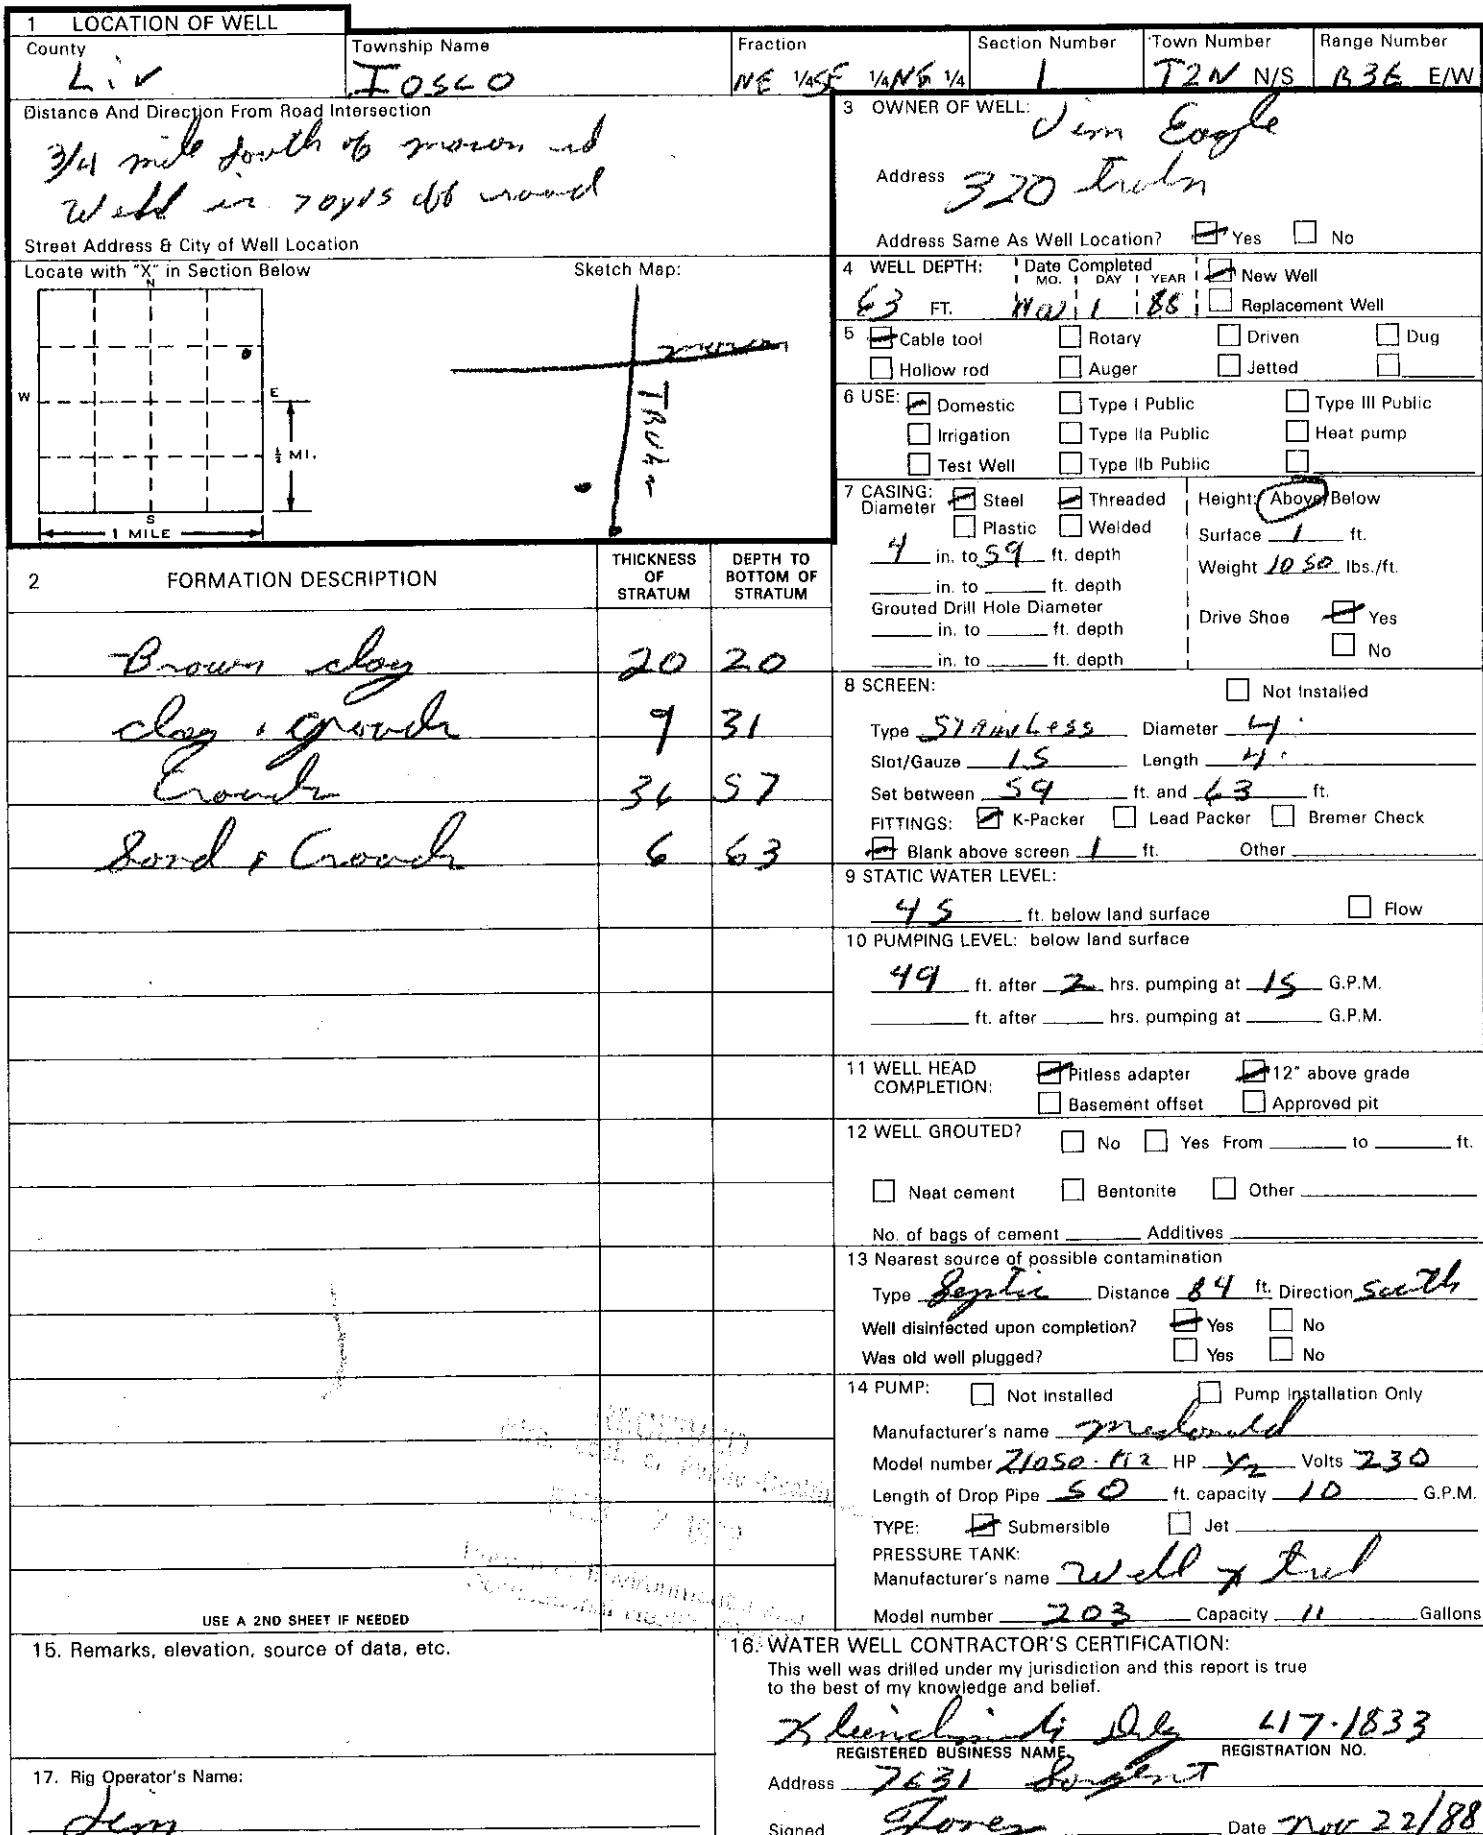 1 LOCATION OF WELL
County Liv
Township Name Iosco
Fraction NE 1/4 SE 1/4 NE 1/4
Section Number 1
Town Number T2N N/S
Range Number R3E E/W
Distance And Direction From Road Intersection
3/4 mile South of mason rd
Well is 70yds off road
Street Address & City of Well Location
Locate with "X" in Section Below
Sketch Map:
N
W
E
S
½ MI.
1 MILE
mason
Truhn
2 FORMATION DESCRIPTION
THICKNESS OF STRATUM
DEPTH TO BOTTOM OF STRATUM
Brown clay 20 20
clay & 9 31
57
Sand & 6 63
USE A 2ND SHEET IF NEEDED
3 OWNER OF WELL: Jim Eagle
Address 320 Truhn
Address Same As Well Location? Yes No
4 WELL DEPTH: 63 FT.
Date Completed MO. DAY YEAR 1 88
New Well
Replacement Well
5 Cable tool Rotary Driven Dug
Hollow rod Auger Jetted
6 USE: Domestic Type I Public Type III Public
Irrigation Type IIa Public Heat pump
Test Well Type IIb Public
7 CASING: Steel Threaded
Diameter Plastic Welded
4 in. to 59 ft. depth
in. to ft. depth
Grouted Drill Hole Diameter
in. to ft. depth
in. to ft. depth
Height: Above/Below
Surface 1 ft.
Weight 1050 lbs./ft.
Drive Shoe Yes
No
8 SCREEN: Not Installed
Type STAINLESS Diameter 4
Slot/Gauze 15 Length 4
Set between 59 ft. and 63 ft.
FITTINGS: K-Packer Lead Packer Bremer Check
Blank above screen 1 ft. Other
9 STATIC WATER LEVEL:
45 ft. below land surface Flow
10 PUMPING LEVEL: below land surface
49 ft. after 2 hrs. pumping at 15 G.P.M.
ft. after hrs. pumping at G.P.M.
11 WELL HEAD COMPLETION: Pitless adapter 12" above grade
Basement offset Approved pit
12 WELL GROUTED? No Yes From to ft.
Neat cement Bentonite Other
No. of bags of cement Additives
13 Nearest source of possible contamination
Type Septic Distance 84 ft. Direction South
Well disinfected upon completion? Yes No
Was old well plugged? Yes No
14 PUMP: Not installed Pump Installation Only
Manufacturer's name mcdonald
Model number HP 1/2 Volts 230
Length of Drop Pipe 50 ft. capacity 10 G.P.M.
TYPE: Submersible Jet
PRESSURE TANK:
Manufacturer's name Well x trol
Model number 203 Capacity 11 Gallons
15. Remarks, elevation, source of data, etc.
16. WATER WELL CONTRACTOR'S CERTIFICATION:
This well was drilled under my jurisdiction and this report is true
to the best of my knowledge and belief.
47-1833
REGISTERED BUSINESS NAME REGISTRATION NO.
Address 7631 Sargent
Signed Date Nov 22/88
17. Rig Operator's Name:
Jim